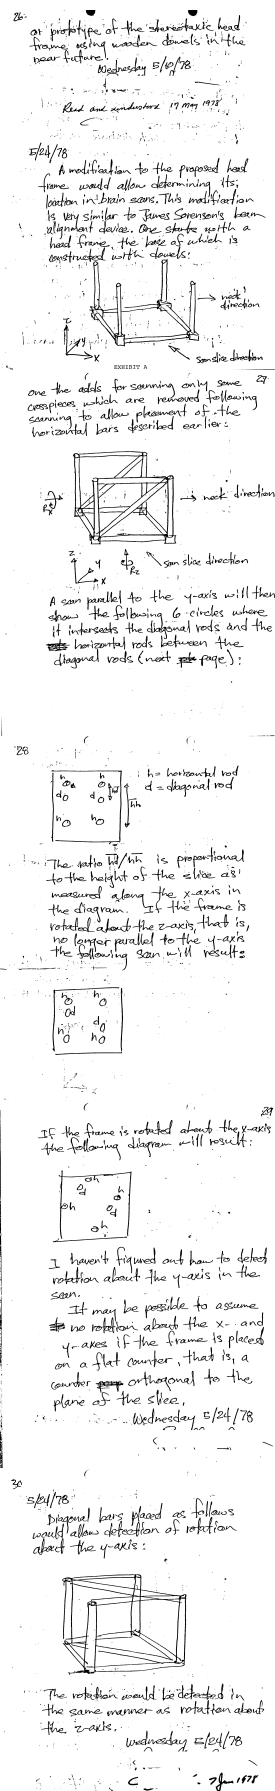 26
or prototype of the stereotaxic head
frame using wooden dowels in the
near future.
Wednesday 5/10/78
Read and understood 17 May 1978
5/24/78
A modification to the proposed head
frame would allow determining its
location in brain scans. This modification
is very similar to James Sorenson's beam
alignment device. One starts with a
head frame, the base of which is
constructed with dowels:
neck direction
z
y
x
scan slice direction
EXHIBIT A
27
One the adds for scanning only some
crosspieces which are removed following
scanning to allow placement of the
horizontal bars described earlier:
neck direction
Rx
scan slice direction
z
y
x
Rz
A scan parallel to the y-axis will then
show the following 6 circles where
it intersects the diagonal rods and the
horizontal rods between the
diagonal rods (next page):
28
h h
h = horizontal rod
d d hd
d = diagonal rod
hh
h h
The ratio hd/hh is proportional
to the height of the slice as
measured along the x-axis in
the diagram. If the frame is
rotated about the z-axis, that is,
no longer parallel to the y-axis
the following scan will result:
h h
d
h d
h
29
If the frame is rotated about the x-axis
the following diagram will result:
h
d h
h d
h
I haven't figured out how to detect
rotation about the y-axis in the
scan.
It may be possible to assume
no rotation about the x- and
y-axes if the frame is placed
on a flat counter, that is, a
counter orthogonal to the
plane of the slice.
Wednesday 5/24/78
30
5/24/78
Diagonal bars placed as follows
would allow detection of rotation
about the y-axis:
The rotation would be detected in
the same manner as rotation about
the z-axis.
Wednesday 5/24/78
7 Jun 1978